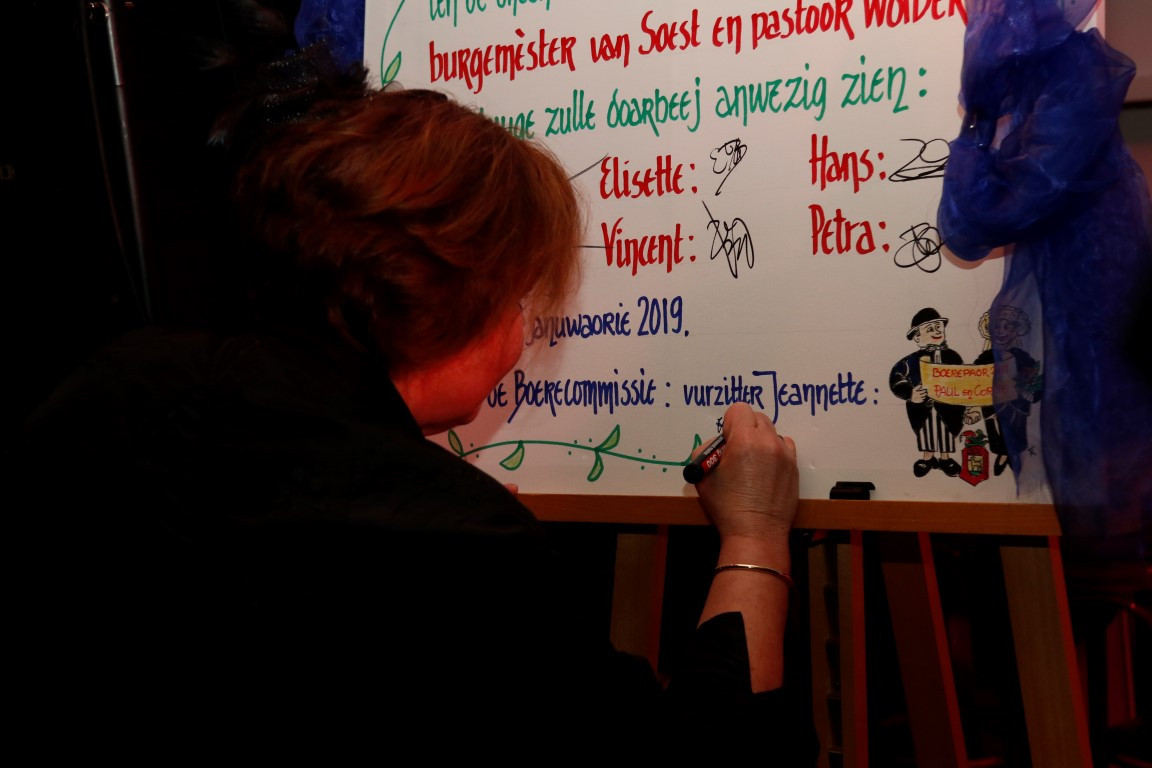 burgemèster van Soest en pastoor
zulle doarbeej anwezig zien:
Elisette: Hans:
Vincent: Petra:
2019.
de Boerecommissie: vurzitter Jeannette:
BOEREPAOR
PAUL en